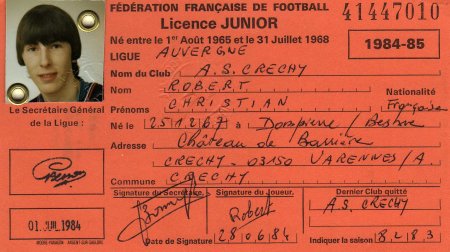 FÉDÉRATION FRANÇAISE DE FOOTBALL
Licence JUNIOR
41447010
Né entre le 1er Août 1965 et le 31 Juillet 1968
1984-85
LIGUE AUVERGNE
Nom du Club A.S. CRECHY
Nom ROBERT
Prénoms CHRISTIAN
Nationalité
Française
Né le 25.12.67 à Dompierre/Besbre
Adresse Château de Barrière
CRECHY - 03150 VARENNES/A
Commune CRECHY
Le Secrétaire Général
de la Ligue :
01 JUIL 1984
Signature du Secrétaire
Signature du Joueur.
Robert
Date de Signature 28.06.84
Dernier Club quitté
A.S. CRECHY
Indiquer la saison 82.83